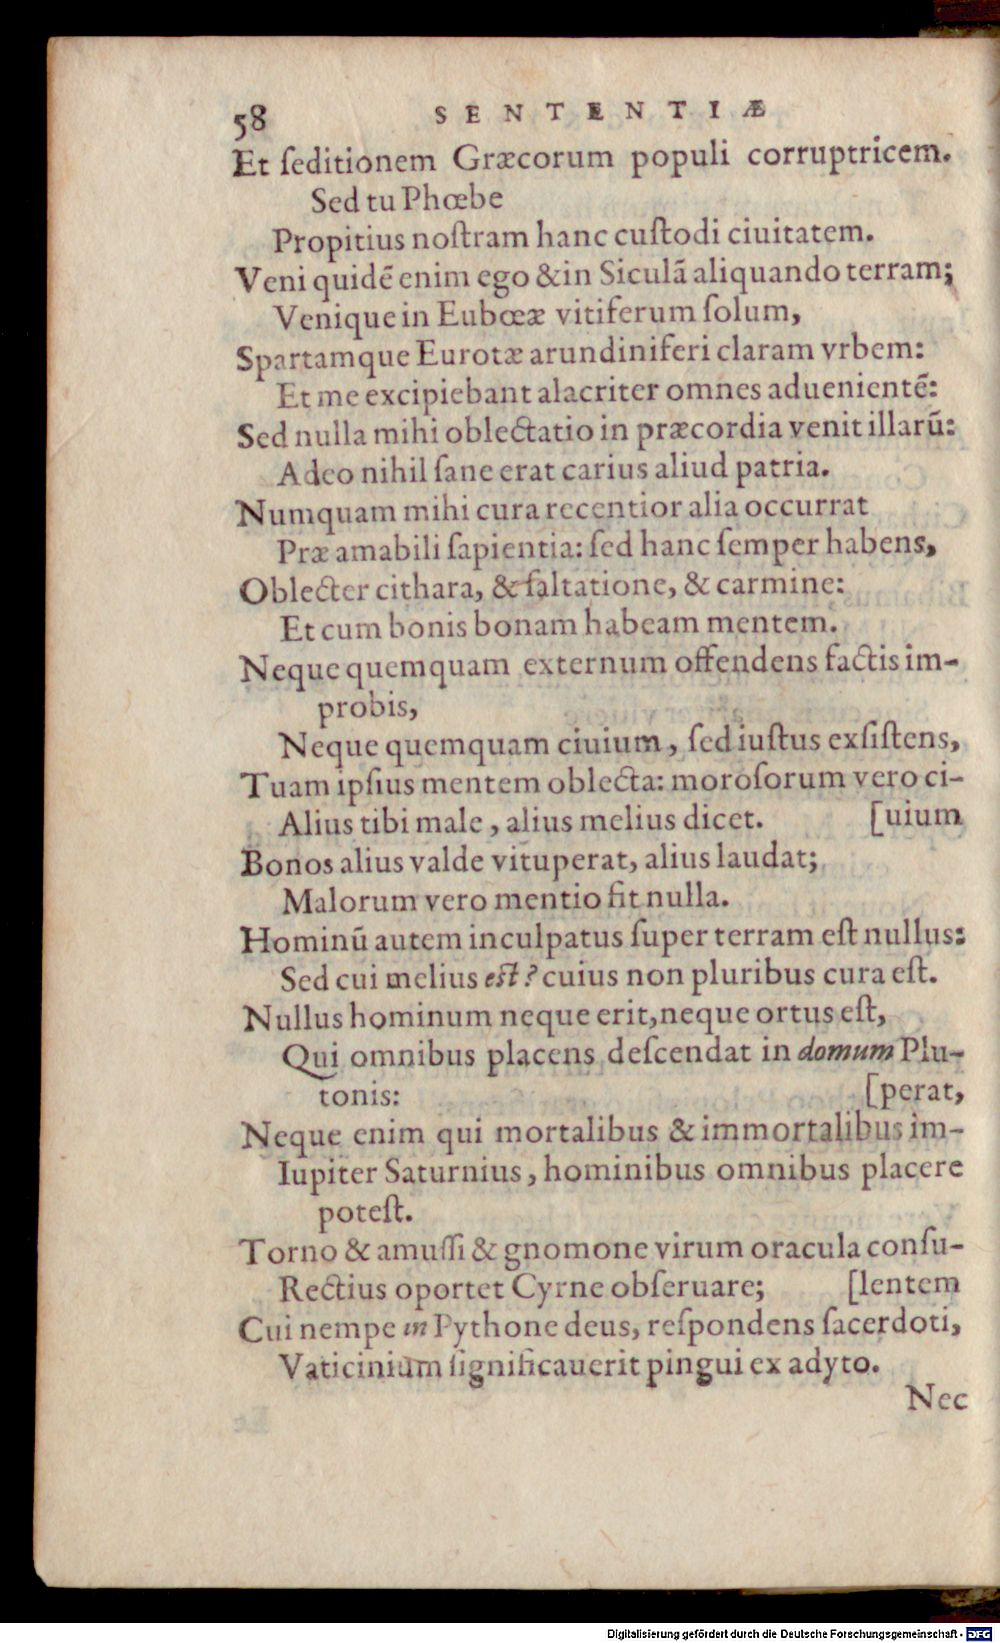 58 SENTENTIÆ
Et ſeditionem Græcorum populi corruptricem.
Sed tu Phœbe
Propitius noſtram hanc cuſtodi ciuitatem.
Veni quidẽ enim ego &in Siculã aliquando terram;
Venique in Eubœæ vitiferum ſolum,
Spartamque Eurotæ arundiniferi claram vrbem:
Et me excipiebant alacriter omnes aduenientẽ:
Sed nulla mihi oblectatio in præcordia venit illarũ:
Adeo nihil ſane erat carius aliud patria.
Numquam mihi cura recentior alia occurrat
Præ amabili ſapientia: ſed hanc ſemper habens,
Oblecter cithara, & ſaltatione, & carmine:
Et cum bonis bonam habeam mentem.
Neque quemquam externum offendens factis im-
probis,
Neque quemquam ciuium, ſed iuſtus exſiſtens,
Tuam ipſius mentem oblecta: moroſorum vero ci-
Alius tibi male, alius melius dicet. [uium
Bonos alius valde vituperat, alius laudat;
Malorum vero mentio fit nulla.
Hominũ autem inculpatus ſuper terram eſt nullus:
Sed cui melius eſt? cuius non pluribus cura eſt.
Nullus hominum neque erit, neque ortus eſt,
Qui omnibus placens deſcendat in domum Plu-
tonis: [perat,
Neque enim qui mortalibus & immortalibus im-
Iupiter Saturnius, hominibus omnibus placere
poteſt.
Torno & amuſſi & gnomone virum oracula conſu-
Rectius oportet Cyrne obſeruare; [lentem
Cui nempe in Pythone deus, reſpondens ſacerdoti,
Vaticinium ſignificauerit pingui ex adyto.
Nec
Digitalisierung gefördert durch die Deutsche Forschungsgemeinschaft - DFG